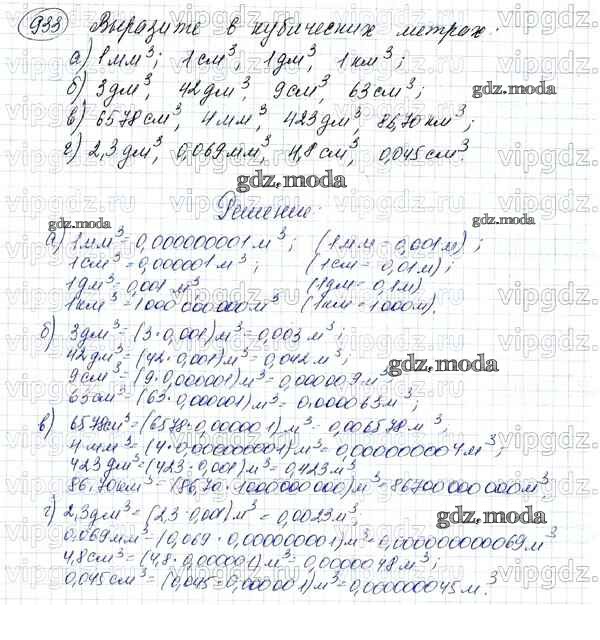 933 Выразите в кубических метрах:
а) 1 мм³; 1 см³, 1 дм³, 1 км³;
б) 3 дм³, 42 дм³, 9 см³, 63 см³; gdz.moda
в) 6578 см³, 4 мм³, 423 дм³, 86,70 км³;
г) 2,3 дм³, 0,069 мм³, 4,8 см³, 0,045 см³.
gdz.moda
Решение:
gdz.moda gdz.moda
а) 1 мм³ = 0,000000001 м³; (1 мм = 0,001 м);
1 см³ = 0,000001 м³; (1 см = 0,01 м);
1 дм³ = 0,001 м³ (1 дм = 0,1 м)
1 км³ = 1000 000 000 м³ (1 км = 1000 м).
б) 3 дм³ = (3·0,001) м³ = 0,003 м³;
42 дм³ = (42·0,001) м³ = 0,042 м³; gdz.moda
9 см³ = (9·0,000001) м³ = 0,000009 м³;
63 см³ = (63·0,000001) м³ = 0,000063 м³;
в) 6578 см³ = (6578·0,000001) м³ = 0,006578 м³;
4 мм³ = (4·0,000000001) м³ = 0,000000004 м³;
423 дм³ = (423·0,001) м³ = 0,423 м³
86,70 км³ = (86,70·1000000000) м³ = 86700 000 000 м³.
г) 2,3 дм³ = (2,3·0,001) м³ = 0,0023 м³; gdz.moda
0,069 мм³ = (0,069·0,000000001) м³ = 0,000000000069 м³
4,8 см³ = (4,8·0,000001) м³ = 0,0000048 м³;
0,045 см³ = (0,045·0,000001) м³ = 0,000000045 м³.